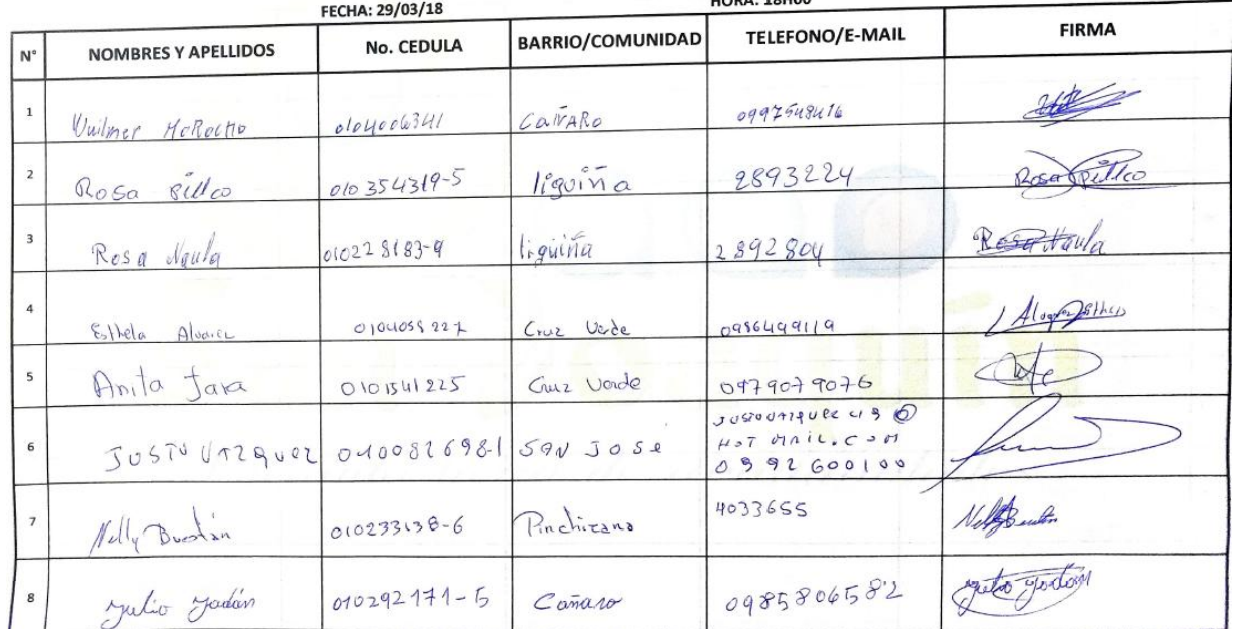 FECHA: 29/03/18 HORA: 18H00
N° NOMBRES Y APELLIDOS No. CEDULA BARRIO/COMUNIDAD TELEFONO/E-MAIL FIRMA
1 Wuilmer McRocho 0104006341 CAÑARO 0997548416
2 Rosa Pillco 010354319-5 liguiña 2893224 Rosa Pillco
3 Rosa Naula 010228183-9 liguiña 2892804 Rosa Naula
4 Esthela Alvarez 0104055227 Cruz Verde 0986499119
5 Anita Jara 0101541225 Cruz Verde 0979079076
6 JUSTO VAZQUEZ 010082698-1 SAN JOSE JUSTOVAZQUEZ419@
HOTMAIL.COM
0992600100
7 Nelly Bustán 010233138-6 Pinchizana 4033655 Nelly Bustán
8 Julio Jadán 010292171-5 Cañaro 0985806582 Julio Jadán